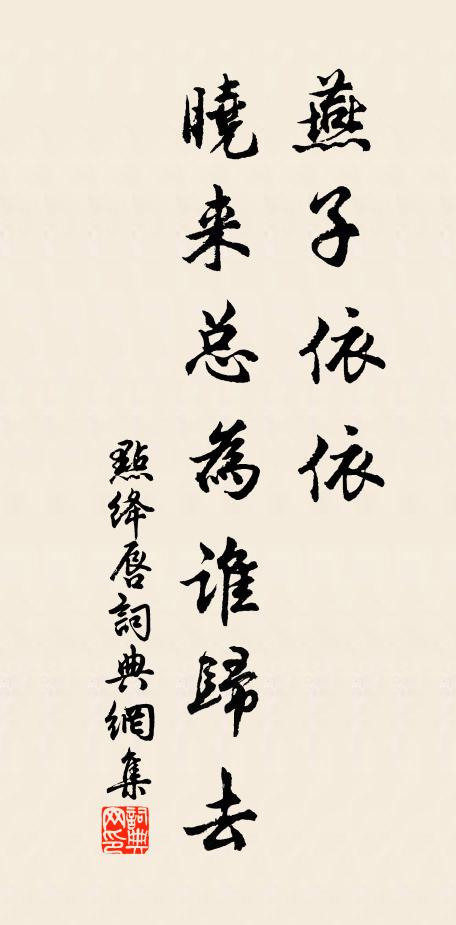 燕子依依
曉来总為谁歸去
點绛唇詞典網集
詞典网印